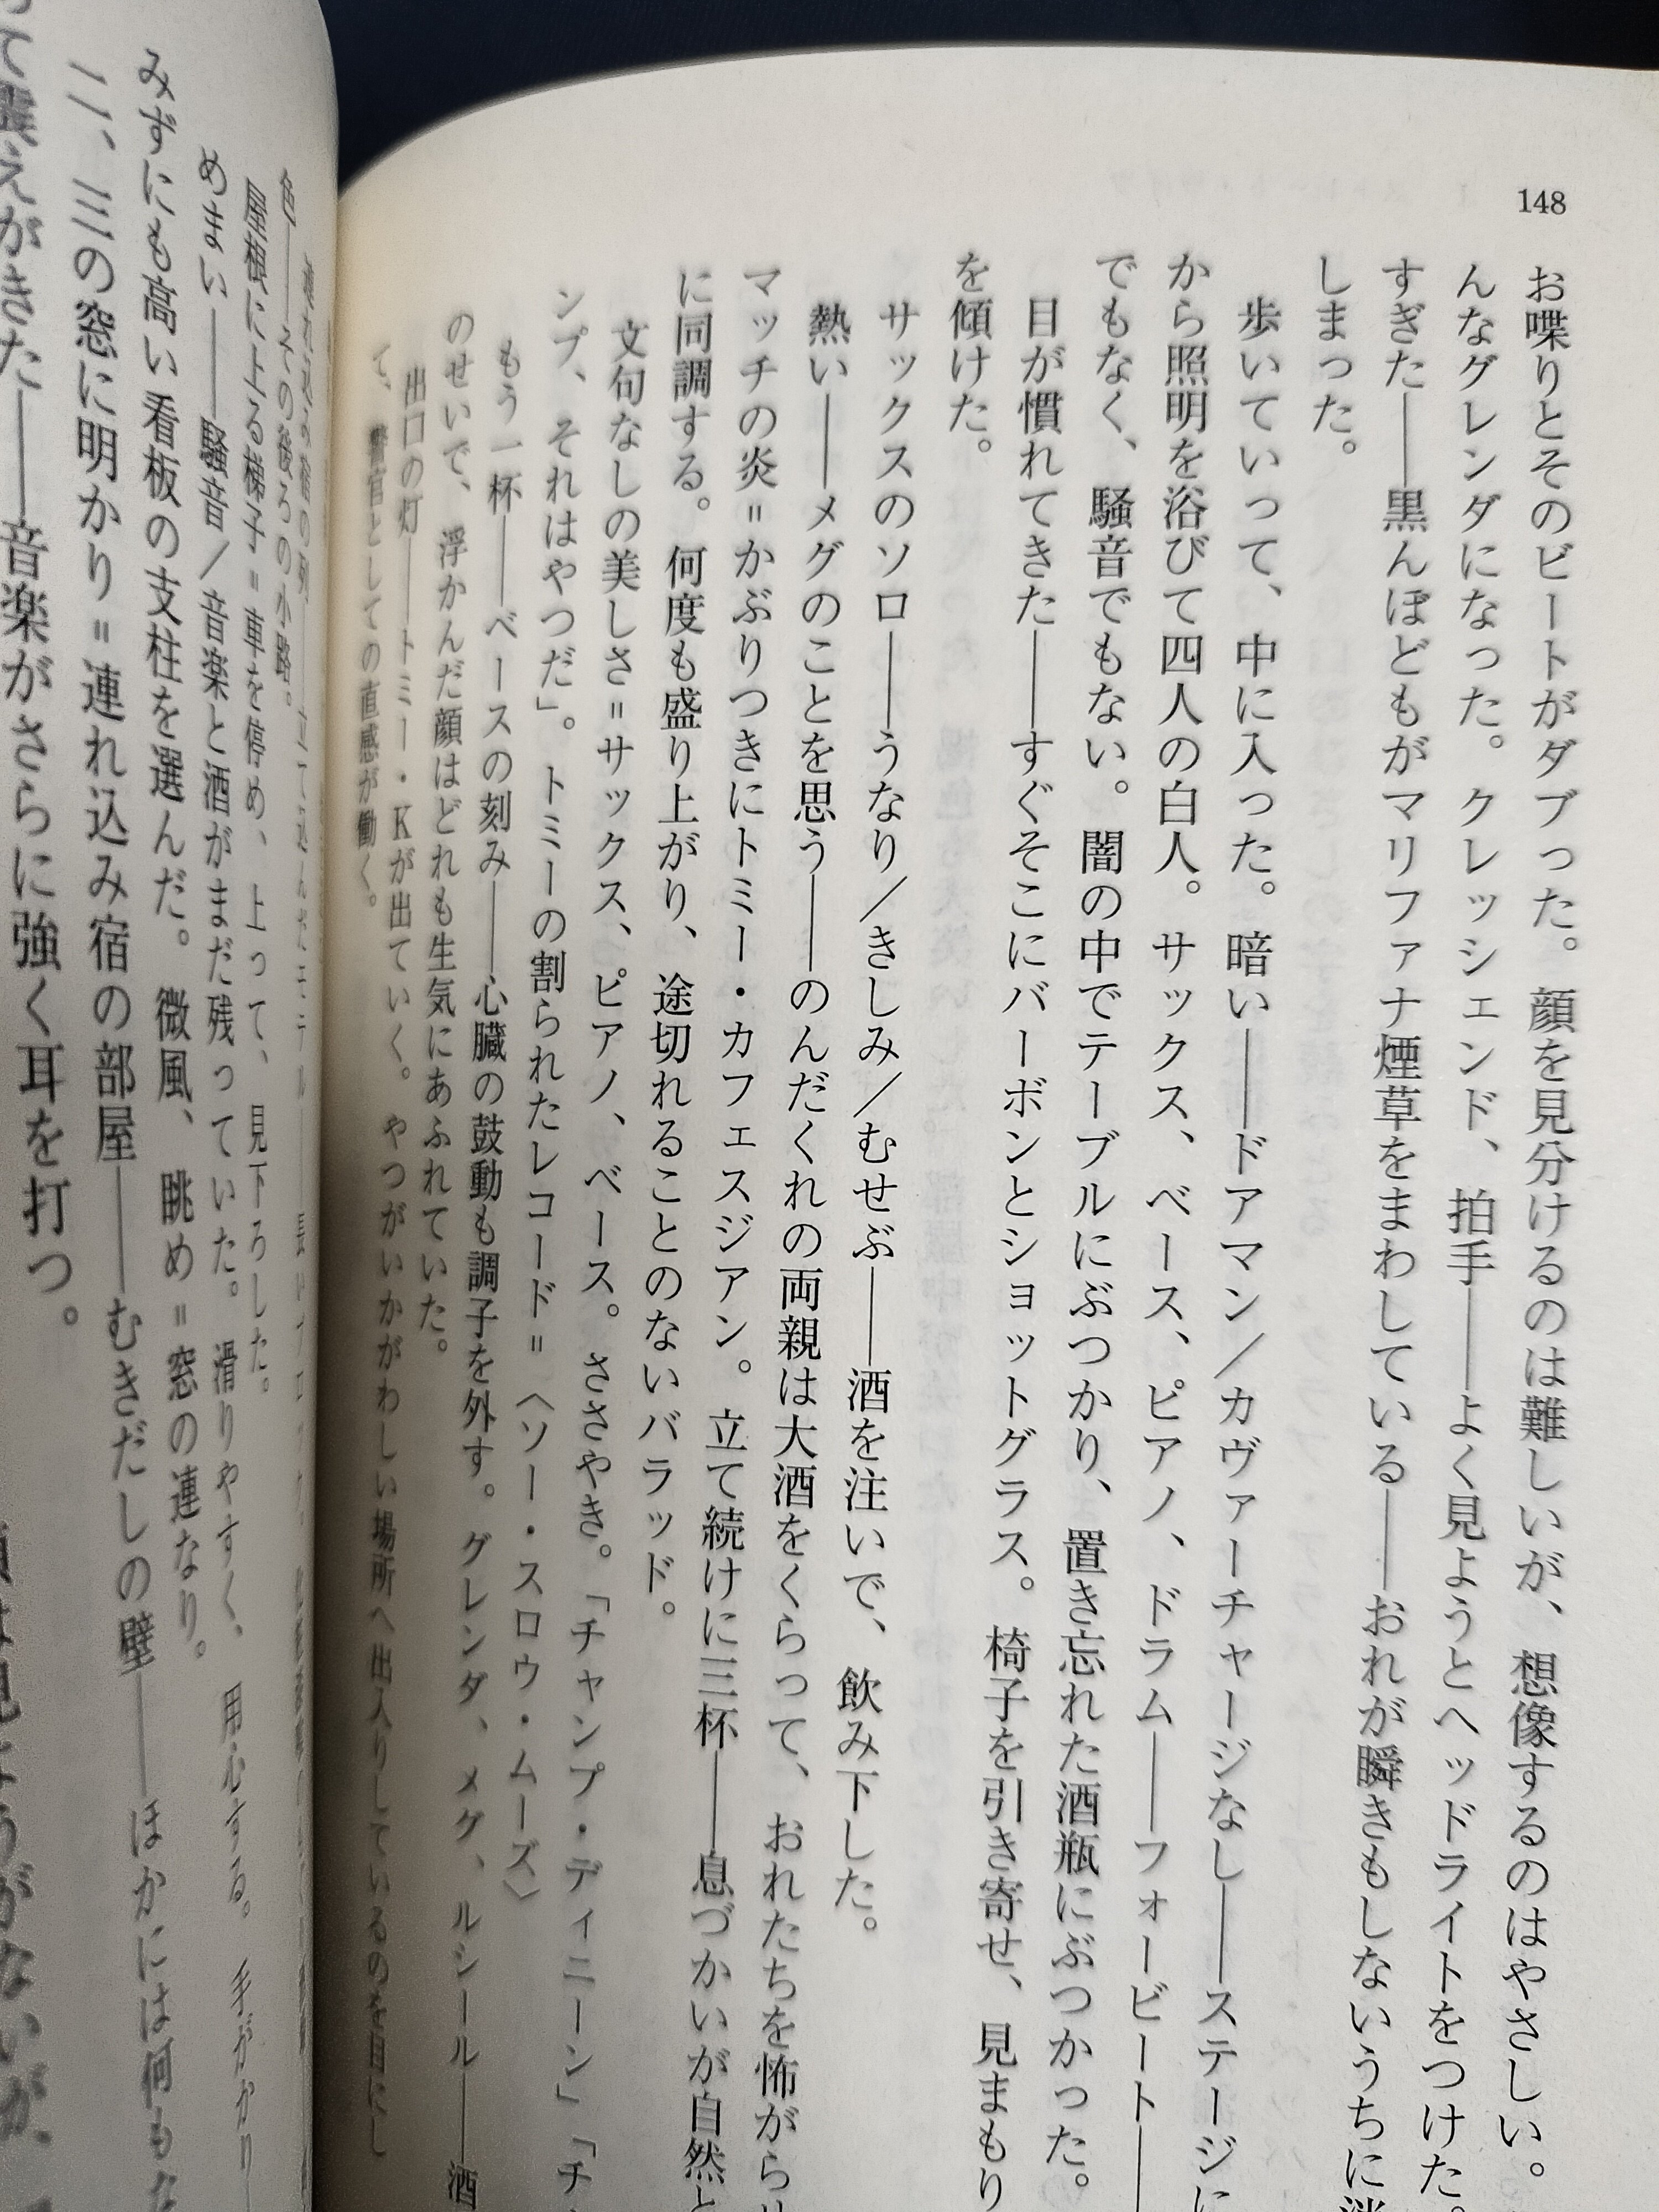 148
お喋りとそのビートがダブった。顔を見分けるのは難しいが、想像するのはやさしい。
んなグレンダになった。クレッシェンド、拍手――よく見ようとヘッドライトをつけた。
すぎた――黒んぼどもがマリファナ煙草をまわしている――おれが瞬きもしないうちに消
しまった。
歩いていって、中に入った。暗い――ドアマン／カヴァーチャージなし――ステージに
から照明を浴びて四人の白人。サックス、ベース、ピアノ、ドラム――フォービート――
でもなく、騒音でもない。闇の中でテーブルにぶつかり、置き忘れた酒瓶にぶつかった。
目が慣れてきた――すぐそこにバーボンとショットグラス。椅子を引き寄せ、見まもり
を傾けた。
サックスのソロ――うなり／きしみ／むせぶ――酒を注いで、飲み下した。
熱い――メグのことを思う――のんだくれの両親は大酒をくらって、おれたちを怖がらせ
マッチの炎＝かぶりつきにトミー・カフェスジアン。立て続けに三杯――息づかいが自然と
に同調する。何度も盛り上がり、途切れることのないバラッド。
文句なしの美しさ＝サックス、ピアノ、ベース。ささやき。「チャンプ・ディニーン」「チ
ンプ、それはやつだ」。トミーの割られたレコード＝〈ソー・スロウ・ムーズ〉
もう一杯――ベースの刻み――心臓の鼓動も調子を外す。グレンダ、メグ、ルシール――酒
のせいで、浮かんだ顔はどれも生気にあふれていた。
出口の灯――トミー・Kが出ていく。やつがいかがわしい場所へ出入りしているのを目にし
て、警官としての直感が働く。
色――その後ろの小路。
屋根に上る梯子＝車を停め、上って、見下ろした。
めまい――騒音／音楽と酒がまだ残っていた。滑りやすく、用心する。手がかり
みずにも高い看板の支柱を選んだ。微風、眺め＝窓の連なり。
二、三の窓に明かり＝連れ込み宿の部屋――むきだしの壁――ほかには何もな
て震えがきた――音楽がさらに強く耳を打つ。